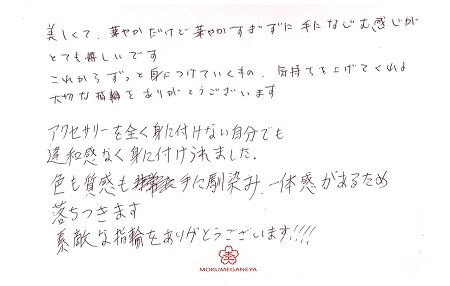 美しくて、華やかだけど華やかすぎずに手になじむ感じが
とても嬉しいです
これからずっと身につけていくもの、気持ちを上げてくれる
大切な指輪をありがとうございます
アクセサリーを全く身に付けない自分でも
違和感なく身に付けられました。
色も質感も手に馴染み、一体感があるため
落ちつきます
素敵な指輪をありがとうございます!!!!
MOKUMEGANEYA